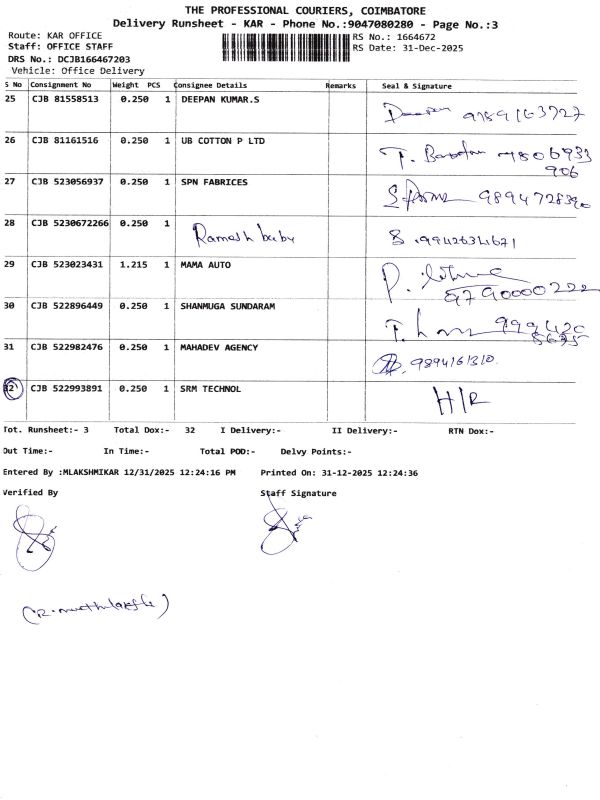 THE PROFESSIONAL COURIERS, COIMBATORE
Delivery Runsheet - KAR - Phone No.:9047080280 - Page No.:3
Route: KAR OFFICE RS No.: 1664672
Staff: OFFICE STAFF RS Date: 31-Dec-2025
DRS No.: DCJB166467203
Vehicle: Office Delivery
S No Consignment No Weight PCS Consignee Details Remarks Seal & Signature
25 CJB 81558513 0.250 1 DEEPAN KUMAR.S Deepan 9789163727
26 CJB 81161516 0.250 1 UB COTTON P LTD
906
27 CJB 523056937 0.250 1 SPN FABRICES
28 CJB 5230672266 0.250 1 Ramesh baby
29 CJB 523023431 1.215 1 MAMA AUTO
9790000222
30 CJB 522896449 0.250 1 SHANMUGA SUNDARAM
31 CJB 522982476 0.250 1 MAHADEV AGENCY 9894161310.
32 CJB 522993891 0.250 1 SRM TECHNOL H/R
Tot. Runsheet:- 3 Total Dox:- 32 I Delivery:- II Delivery:- RTN Dox:-
Out Time:- In Time:- Total POD:- Delvy Points:-
Entered By :MLAKSHMIKAR 12/31/2025 12:24:16 PM Printed On: 31-12-2025 12:24:36
Verified By Staff Signature